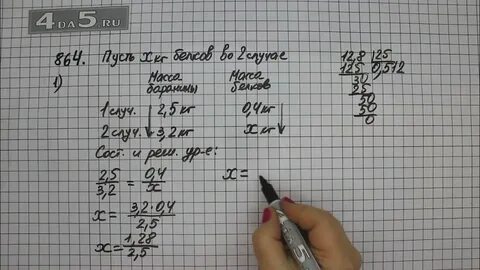 4DA5.RU
864. Пусть x кг белков во 2 случае
1) Масса баранины Масса белков
1 случ. ↓ 2,5 кг 0,4 кг ↓
2 случ. 3,2 кг x кг
Сост. и реш. ур-е:
2,5/3,2 = 0,4/x
x = 3,2·0,4/2,5
x = 1,28/2,5
x =
12,8 | 25
125 | 0,512
30
25
50
50
0
5